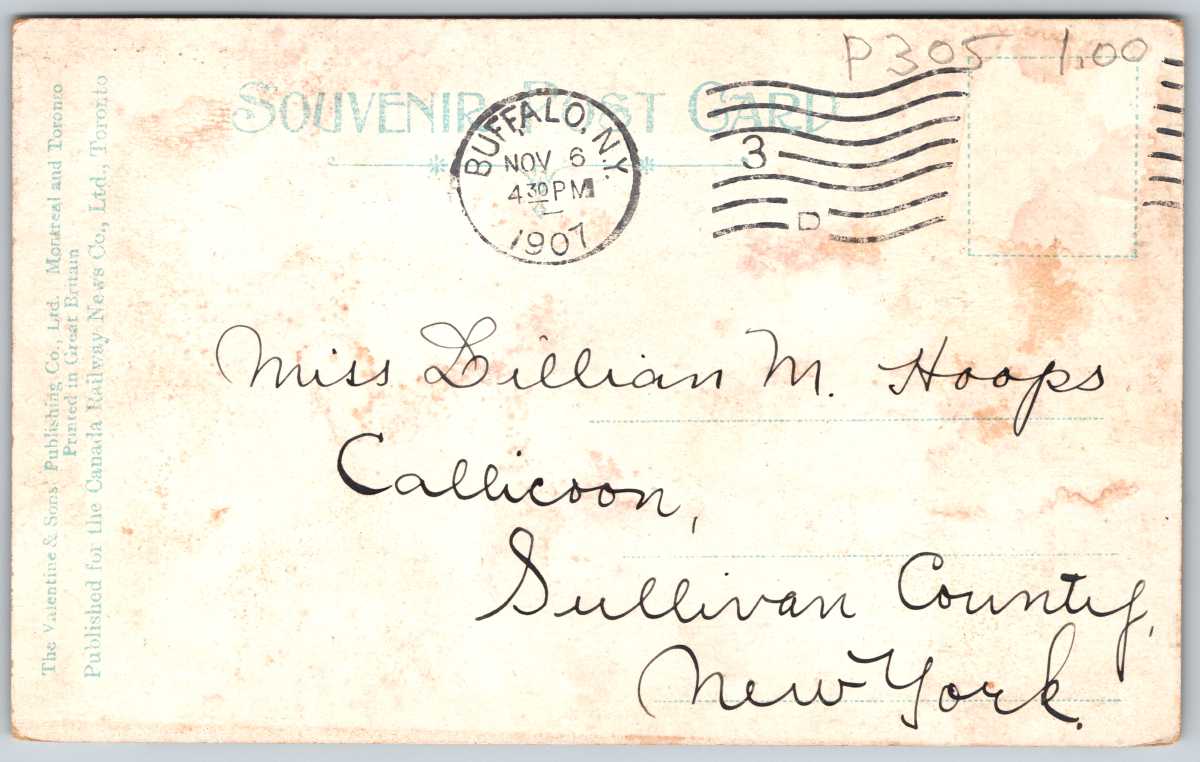 P305 1.00
SOUVENIR POST CARD
BUFFALO, N.Y.
NOV 6
4 30 PM
1907
3
D
Miss Lillian M. Hoops
Callicoon,
Sullivan County,
New York.
The Valentine & Sons' Publishing Co., Ltd. Montreal and Toronto
Printed in Great Britain
Published for the Canada Railway News Co., Ltd., Toronto